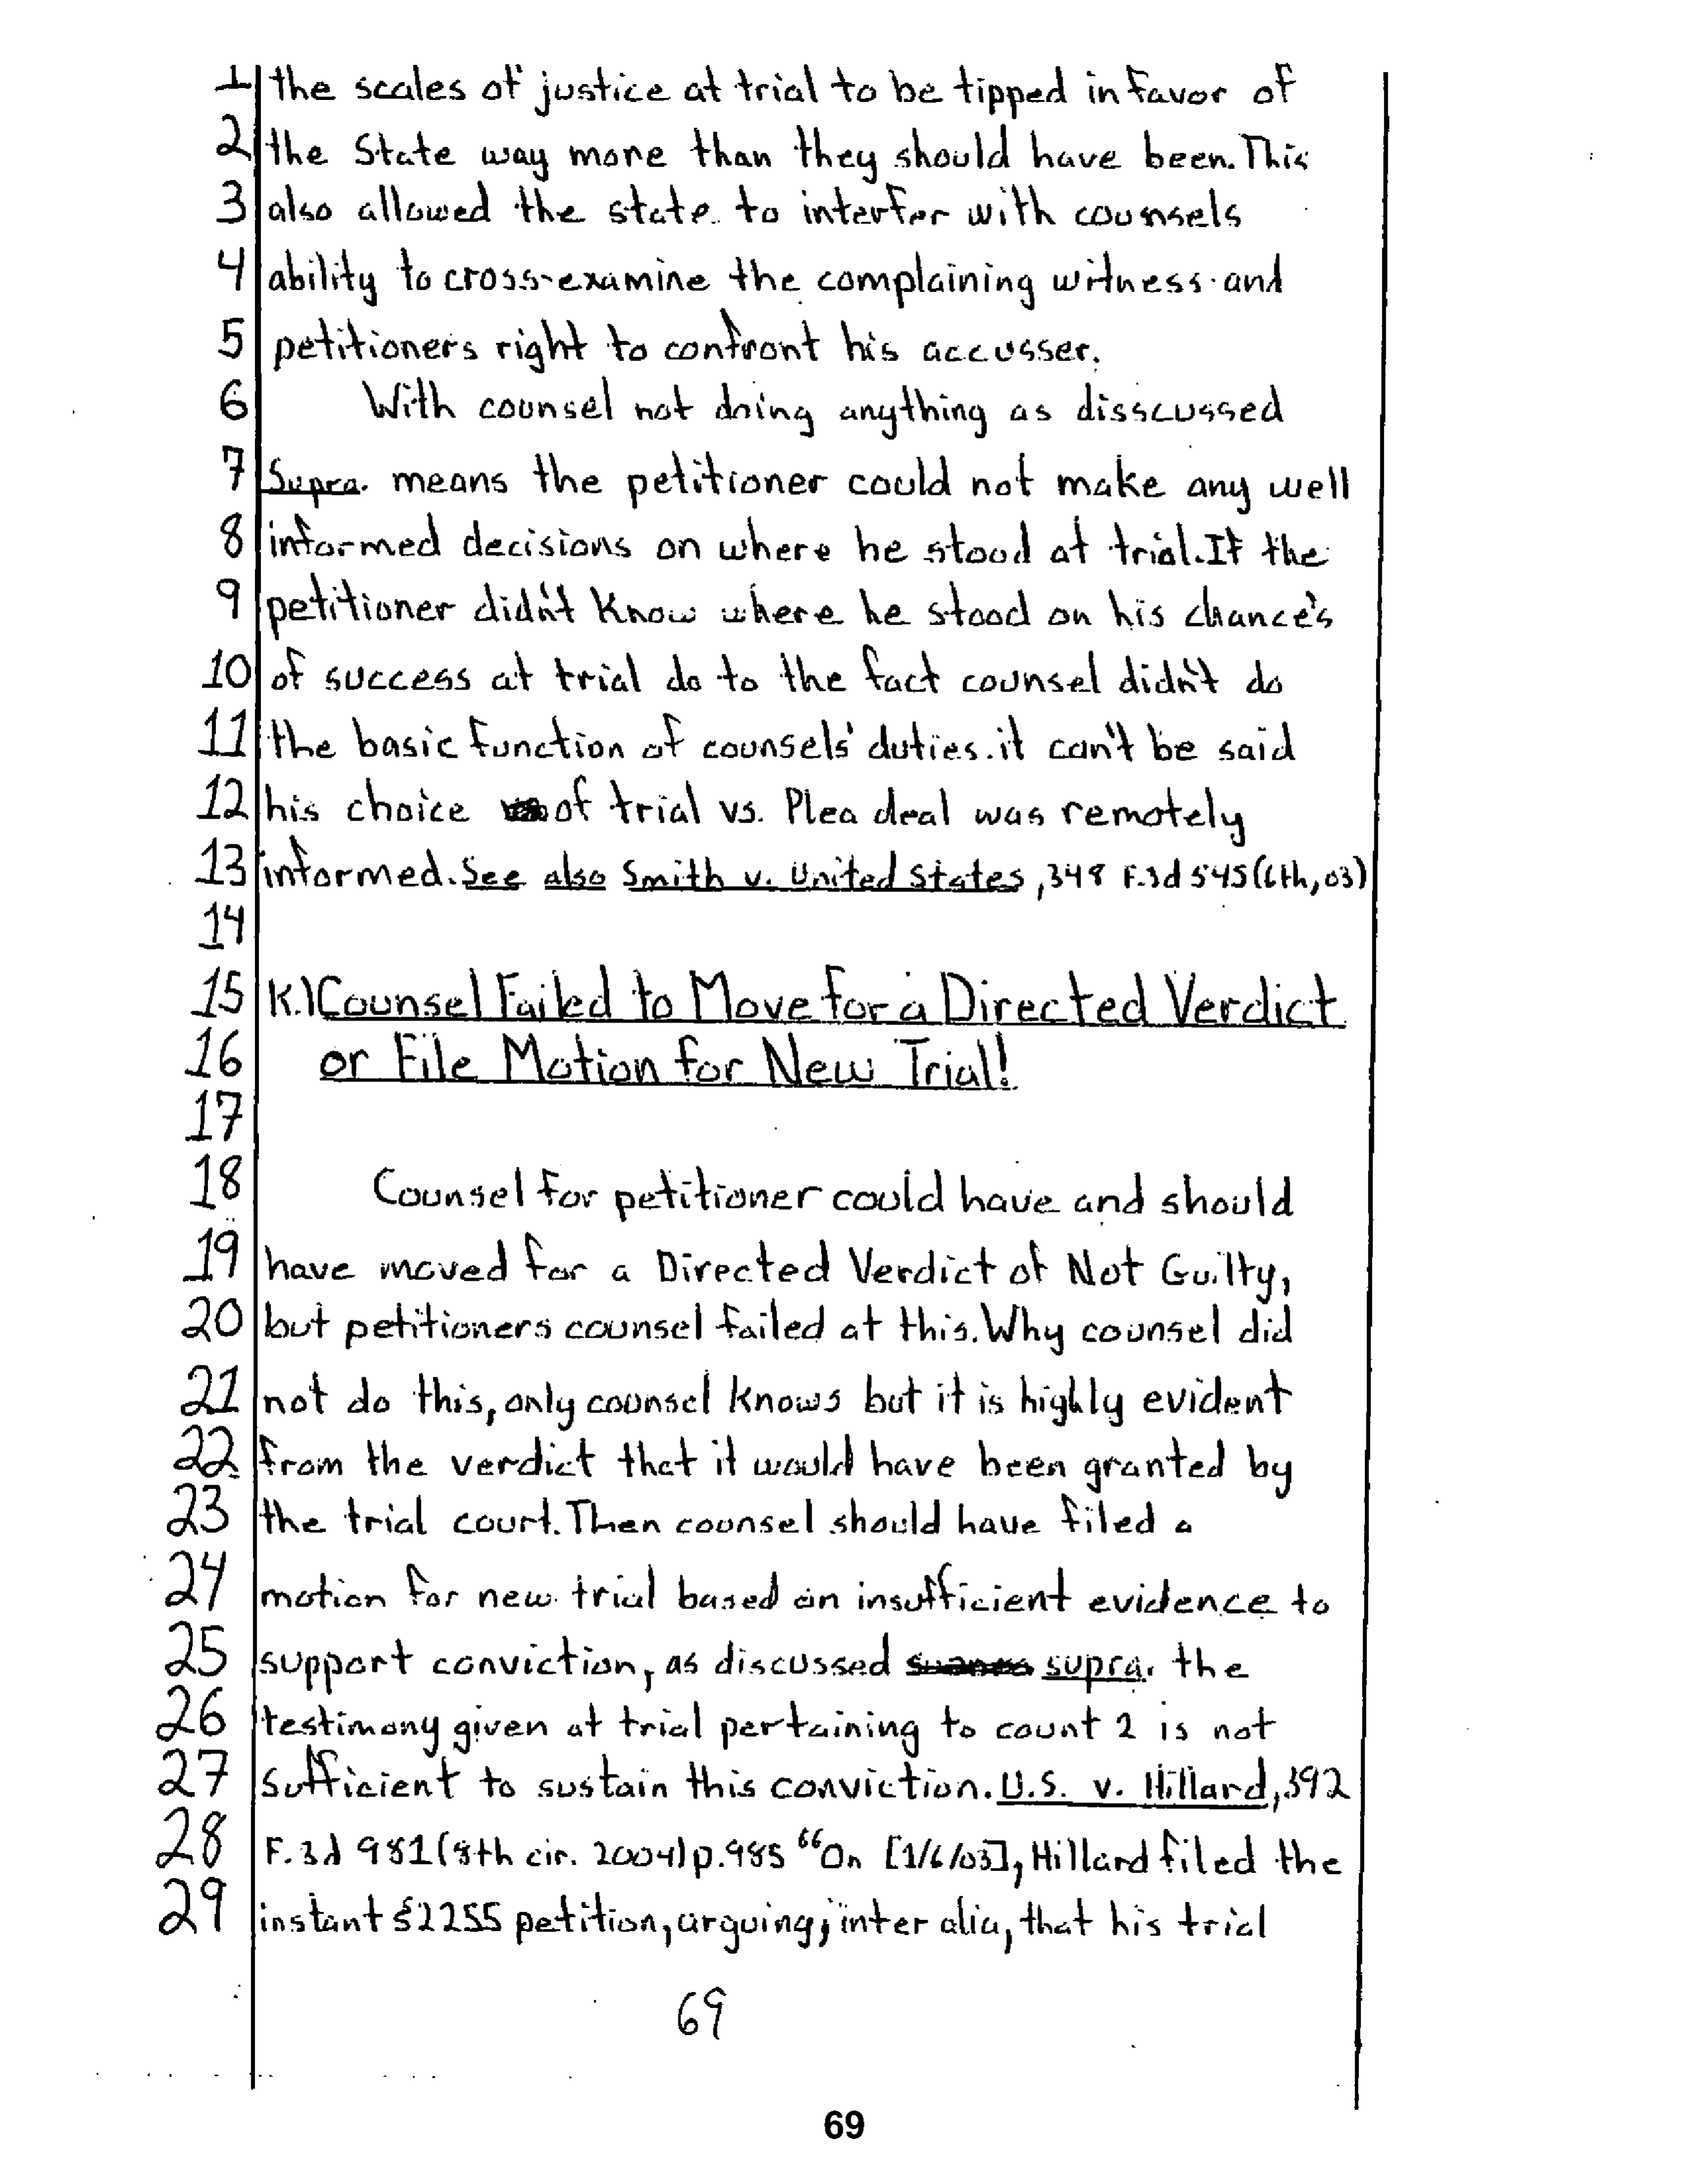 1 the scales of justice at trial to be tipped in favor of
2 the State way more than they should have been. This
3 also allowed the state to interfer with counsels
4 ability to cross-examine the complaining witness and
5 petitioners right to confront his accusser.
6 With counsel not doing anything as disscussed
7 Supra. means the petitioner could not make any well
8 informed decisions on where he stood at trial. If the
9 petitioner didn't know where he stood on his chance's
10 of success at trial do to the fact counsel didn't do
11 the basic function of counsels' duties. it can't be said
12 his choice of trial vs. Plea deal was remotely
13 informed. See also Smith v. United States, 348 F.3d 545 (6th, 03)
14
15 K.) Counsel Failed to Move for a Directed Verdict
16 or File Motion for New Trial!
17
18 Counsel for petitioner could have and should
19 have moved for a Directed Verdict of Not Guilty,
20 but petitioners counsel failed at this. Why counsel did
21 not do this, only counsel knows but it is highly evident
22 from the verdict that it would have been granted by
23 the trial court. Then counsel should have filed a
24 motion for new trial based on insufficient evidence to
25 support conviction, as discussed supra. the
26 testimony given at trial pertaining to count 2 is not
27 sufficient to sustain this conviction. U.S. v. Hillard, 392
28 F.3d 981 (8th cir. 2004) p.985 "On [1/6/03], Hillard filed the
29 instant §2255 petition, arguing, inter alia, that his trial
69
69